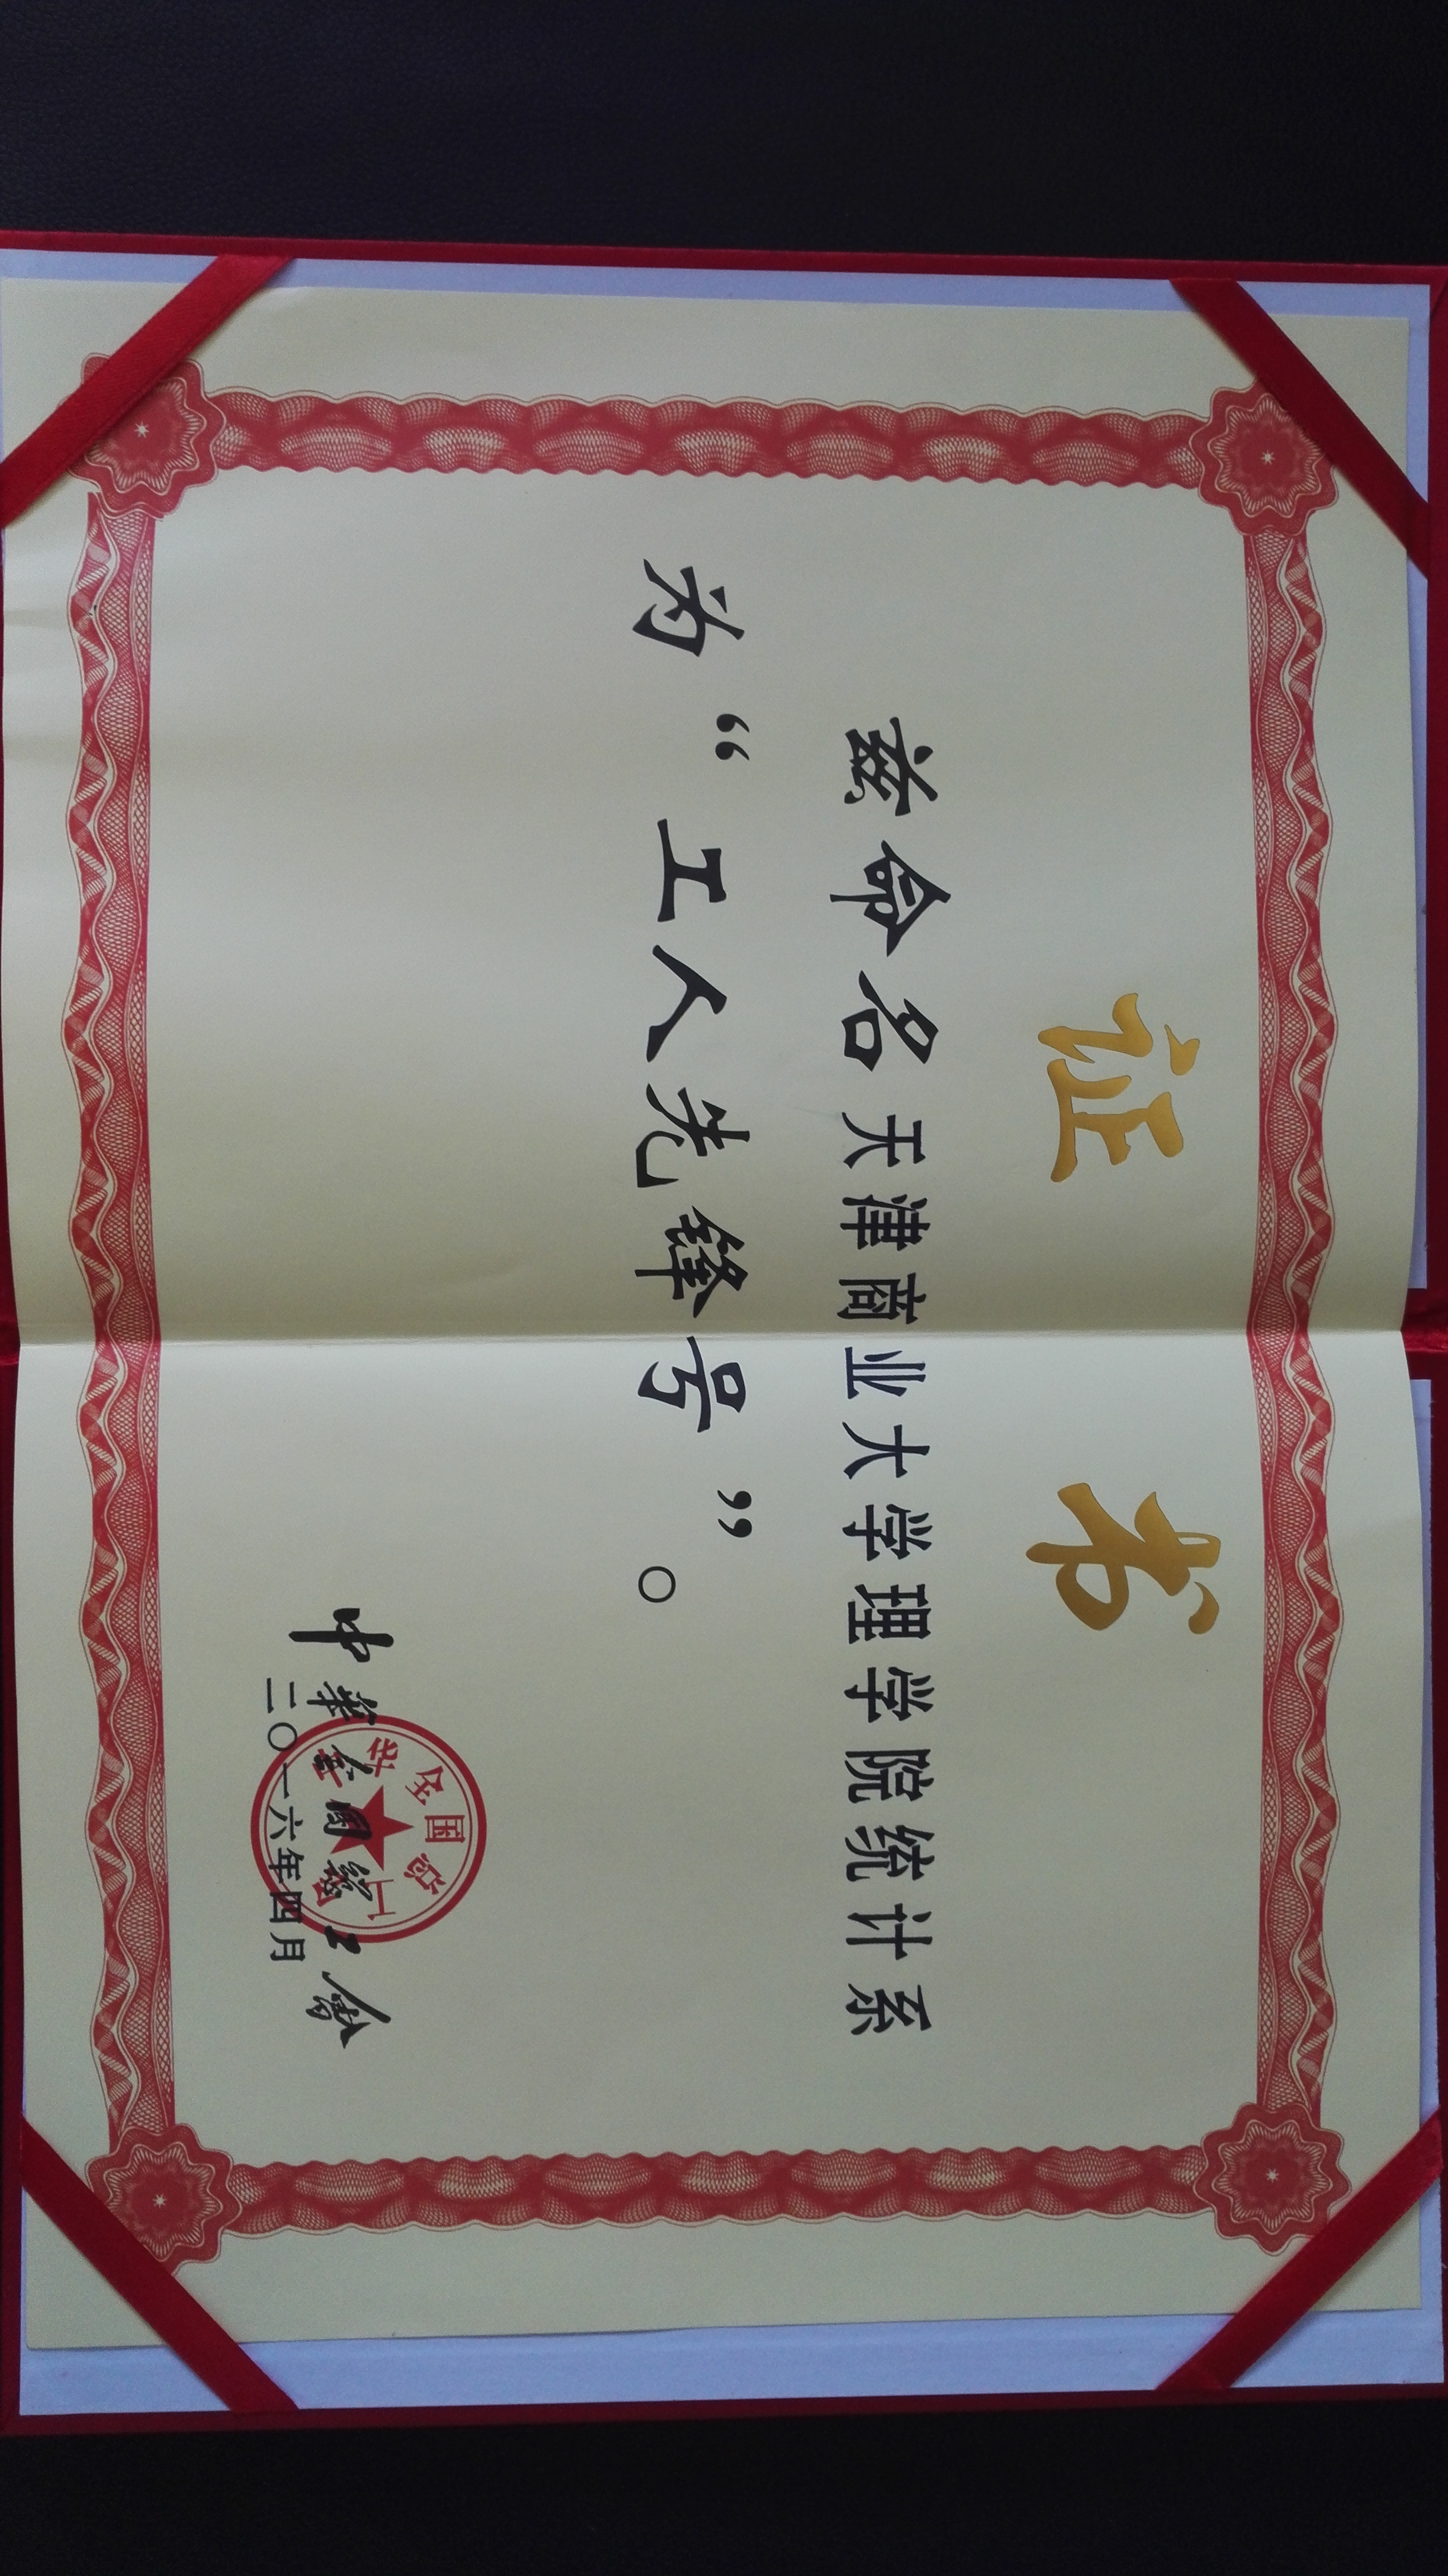 证书
兹命名天津商业大学理学院统计系
为“工人先锋号”。
中华全国总工会
二〇一六年四月
中华全国总工会